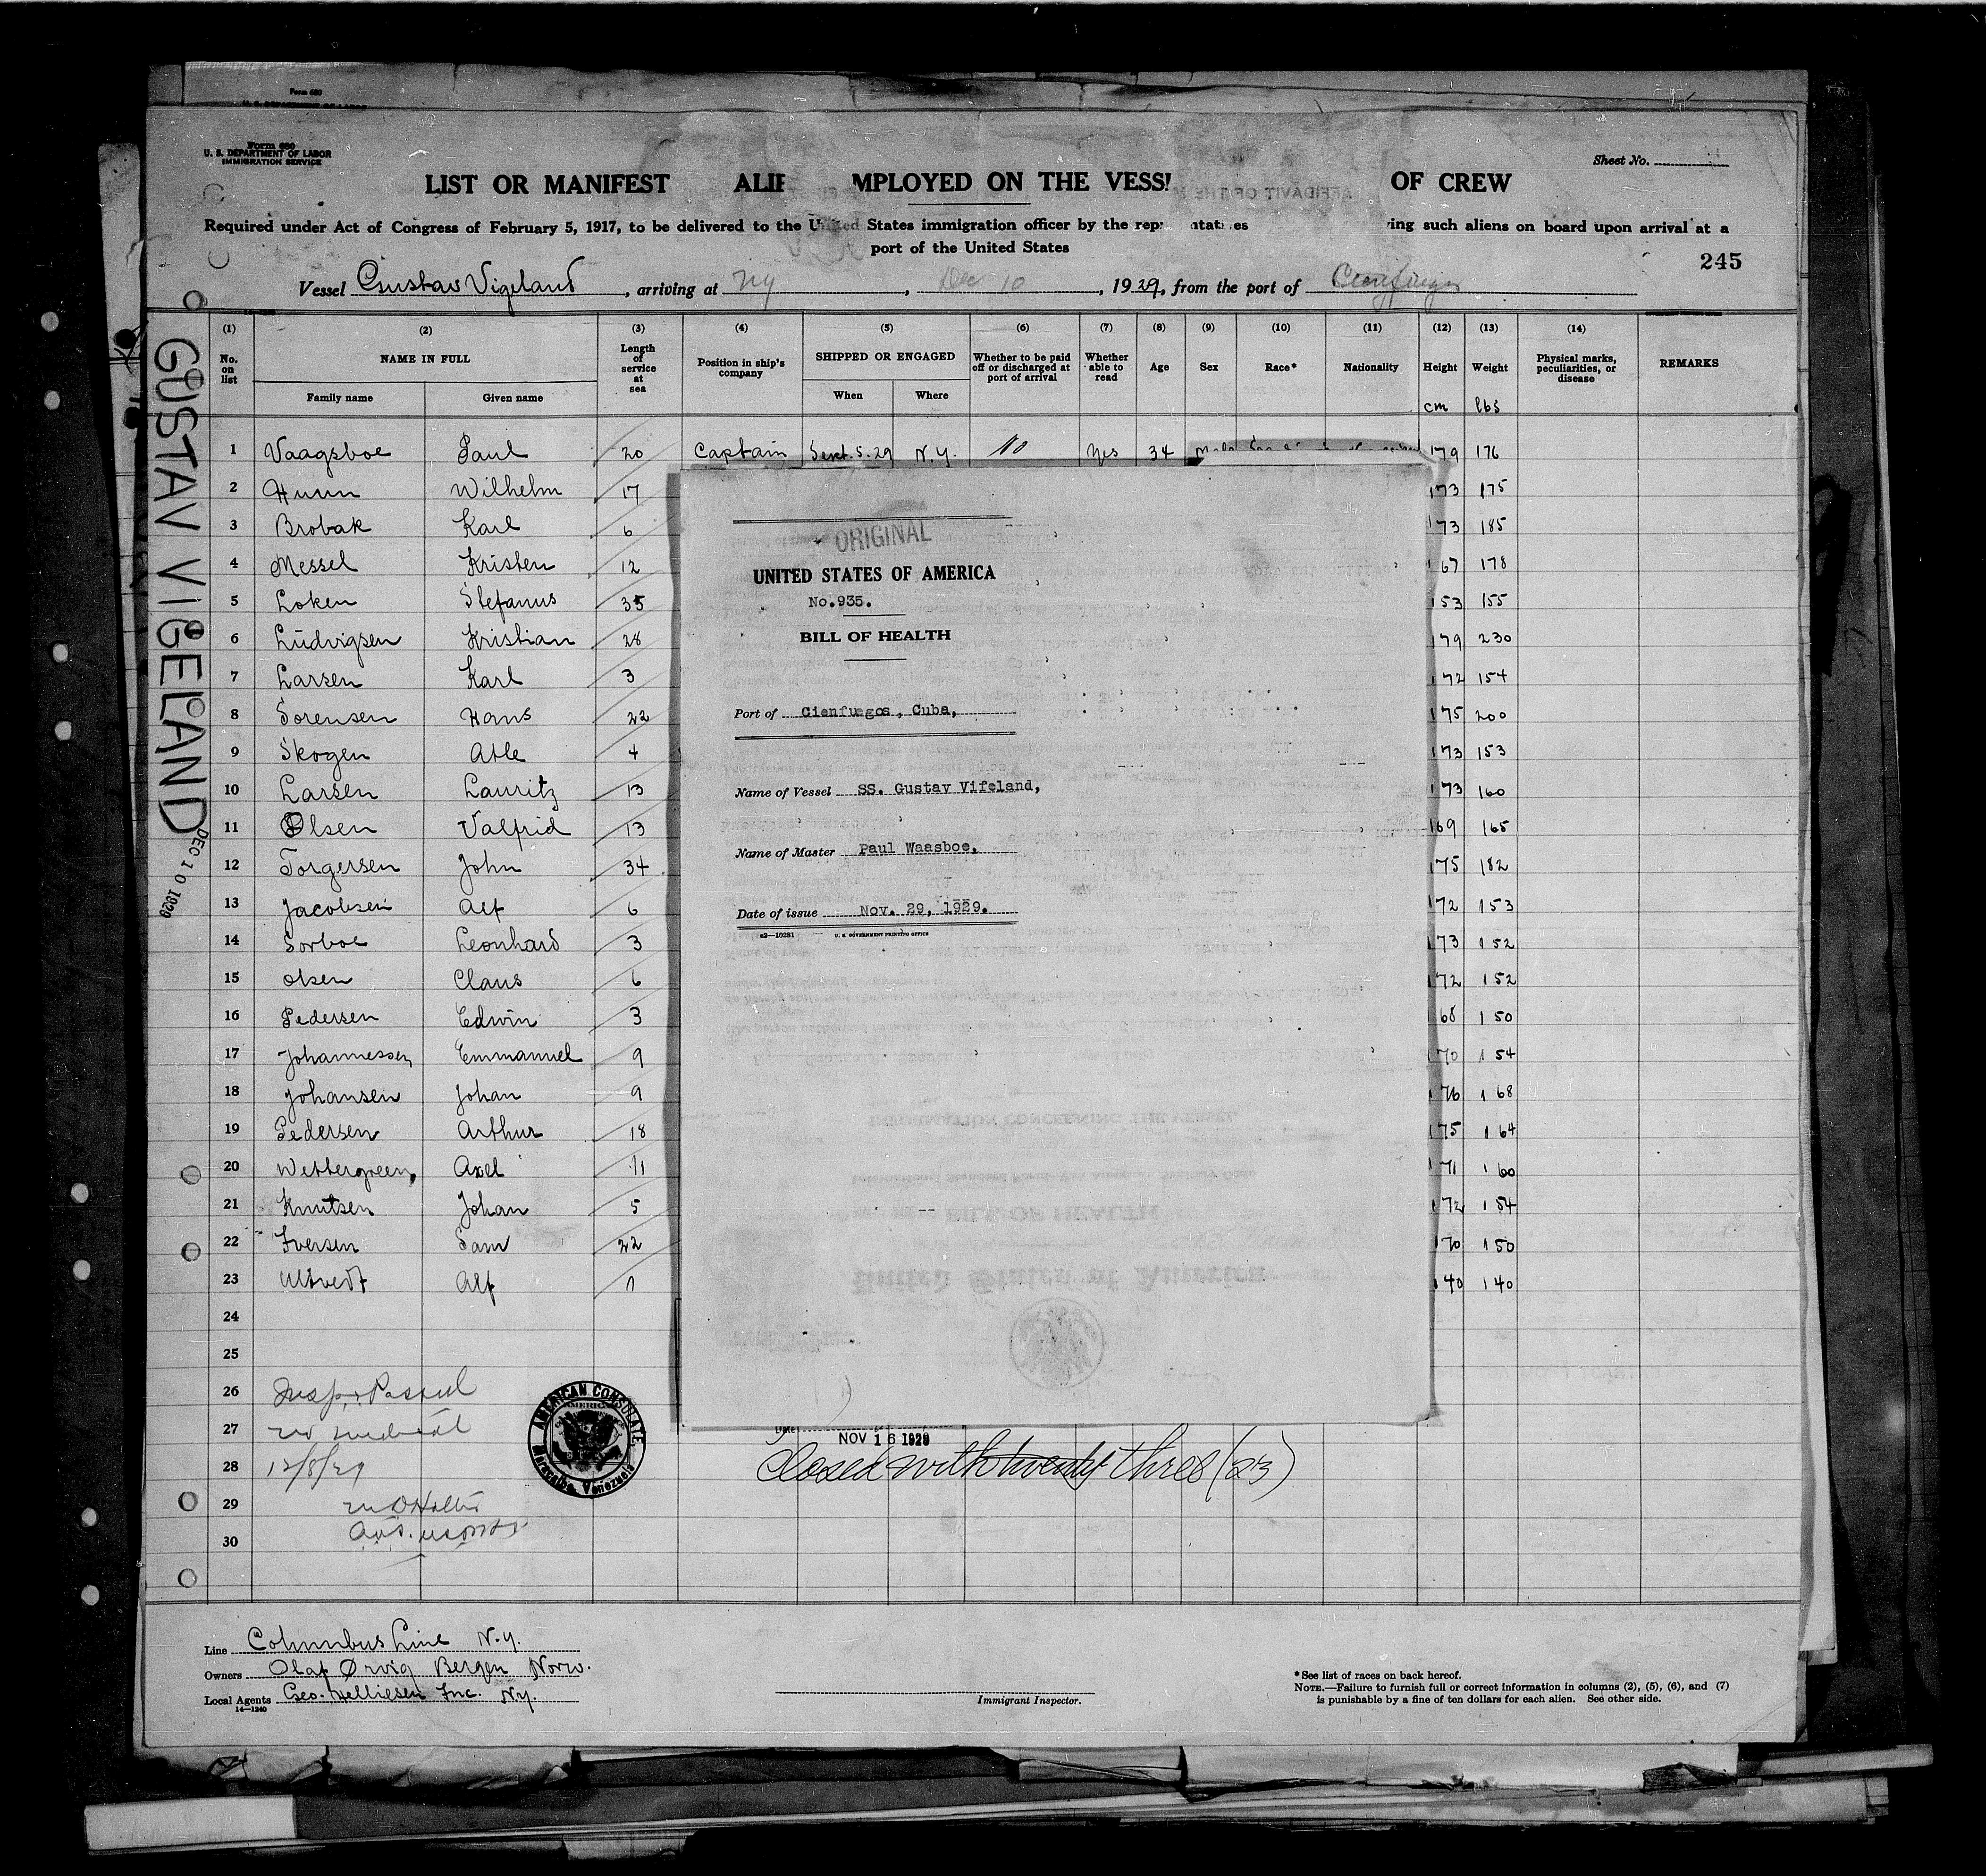 Form 680
U. S. DEPARTMENT OF LABOR
Form 680
U. S. DEPARTMENT OF LABOR
IMMIGRATION SERVICE
Sheet No.
LIST OR MANIFEST ALIE MPLOYED ON THE VESS OF CREW
Required under Act of Congress of February 5, 1917, to be delivered to the United States immigration officer by the repr ntati es ving such aliens on board upon arrival at a
port of the United States
245
Vessel Gustav Vigeland, arriving at NY, Dec 10, 1929, from the port of Cienfuegos
GUSTAV VIGELAND
DEC 10 1929
(1) (2) (3) (4) (5) (6) (7) (8) (9) (10) (11) (12) (13) (14)
No. on list NAME IN FULL Length of service at sea Position in ship's company SHIPPED OR ENGAGED Whether to be paid off or discharged at port of arrival Whether able to read Age Sex Race* Nationality Height Weight Physical marks, peculiarities, or disease REMARKS
Family name Given name When Where cm lbs
1 Vaagsboe Paul 20 Captain Sept. 5. 29 N.Y. No Yes 34 179 176
2 Huun Wilhelm 17 173 175
3 Brobak Karl 6 173 185
4 Messel Kristen 12 167 178
5 Loken Stefanus 35 153 155
6 Ludvigsen Kristian 28 179 230
7 Larsen Karl 3 172 154
8 Sorensen Hans 22 175 200
9 Skogen Atle 4 173 153
10 Larsen Lauritz 13 173 160
11 Olsen Valfrid 13 169 165
12 Torgersen John 34 175 182
13 Jacobsen Alf 6 172 153
14 Sorboe Leonhard 3 173 152
15 Olsen Claus 6 172 152
16 Pedersen Edwin 3 168 150
17 Johannessen Emmanuel 9 170 154
18 Johansen Johan 9 176 168
19 Pedersen Arthur 18 175 164
20 Wettergreen, Axel 11 171 160
21 Knutsen Johan 5 172 154
22 Iversen Sam 22 170 150
23 Alf 140 140
24
25
26 Insp. & Passed
27 medical
28 12/8/29
29
30
ORIGINAL
UNITED STATES OF AMERICA
No.935.
BILL OF HEALTH
Port of Cienfuegos, Cuba,
Name of Vessel SS. Gustav Vifeland,
Name of Master Paul Waasboe,
Date of issue Nov. 29, 1929.
c2—10281 U. S. GOVERNMENT PRINTING OFFICE
INFORMATION CONCERNING THE VESSEL
BILL OF HEALTH
United States of America
AMERICAN CONSULATE
Maracaibo, Venezuela
Date NOV 16 1929
Closed with twenty three (23)
Line Columbus Line N.Y.
Owners Olaf Ørvig Bergen Norw.
Local Agents Geo. Helliesen Inc. N.Y.
14—1240
Immigrant Inspector.
*See list of races on back hereof.
NOTE.—Failure to furnish full or correct information in columns (2), (5), (6), and (7)
is punishable by a fine of ten dollars for each alien. See other side.